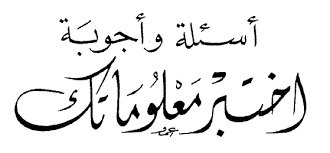 أسئلة وأجوبة
اختبر معلوماتك